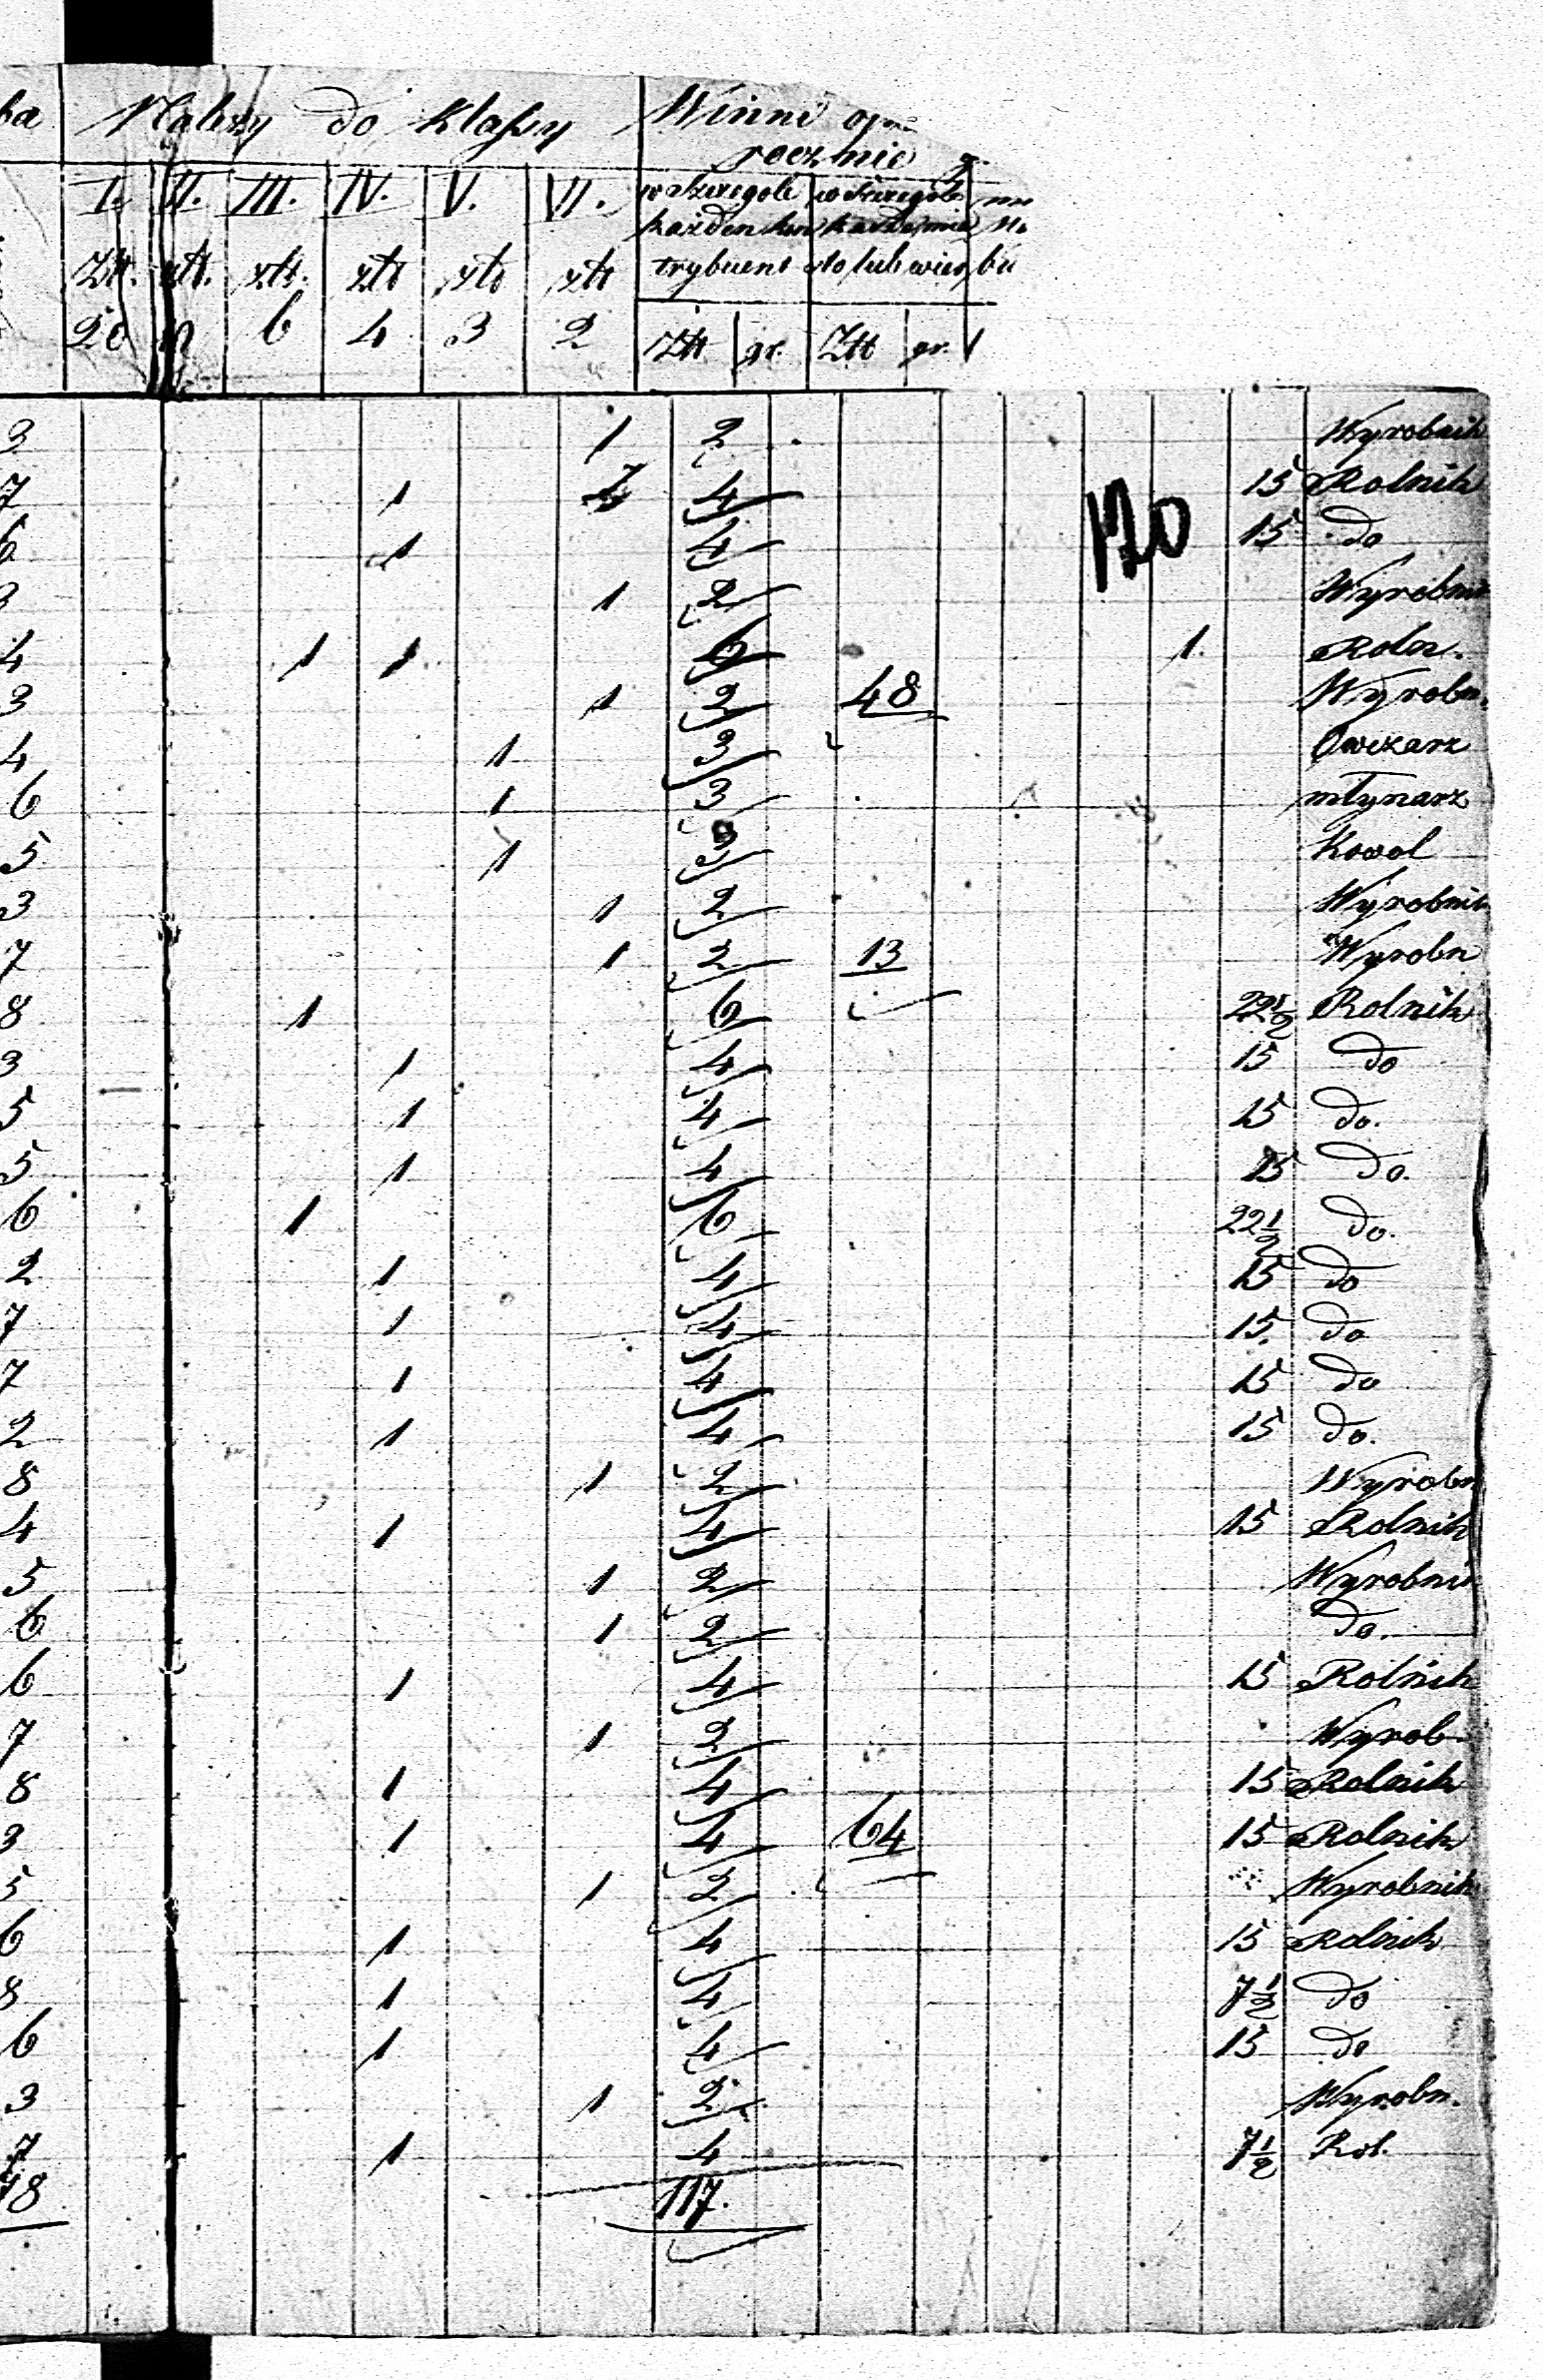 ba Należy do Klassy Winni
rocznie
I. II. III. IV. V. VI. w szczegole w szczegole
każden kon
trybuent sto lub wies
Złt. złt. złt. złt złt złt
20 6 4 3 2 Złt gr. Złt gr.
3 1 2 Wyrobnik
7 1 4 15 Rolnik
6 1 4 15 do
120
3 1 2 Wyrobni
4 1 1 6 1. Roln.
3 1 2 48 Wyrobn.
4 1 3 Owczarz
6 1 3 młynarz
5 1 3 Kowal
3 1 2 Wyrobnik
7 1 2 13 Wyrobn
8 1 6 22½ Rolnik
3 1 4 15 do
5 1 4 15 do.
5 1 4 15 do.
6 1 6 22½ do.
2 1 4 15 do
7 1 4 15. do
7 1 4 15 do
2 1 4 15 do.
8 1 2 Wyrobn
4 1 4 15 Rolnik
5 1 2 Wyrobnik
6 1 2 do.
6 1 4 15 Rolnik
7 1 2 Wyrob.
8 1 4 15 Rolnik
3 1 4 64 15 Rolnik
5 1 2 Wyrobnik
6 1 4 15 Rolnik
8 1 4 7½ do
6 1 4 15 do
3 1 2 Wyrobn.
7 1 4 7½ Rol.
48 117.